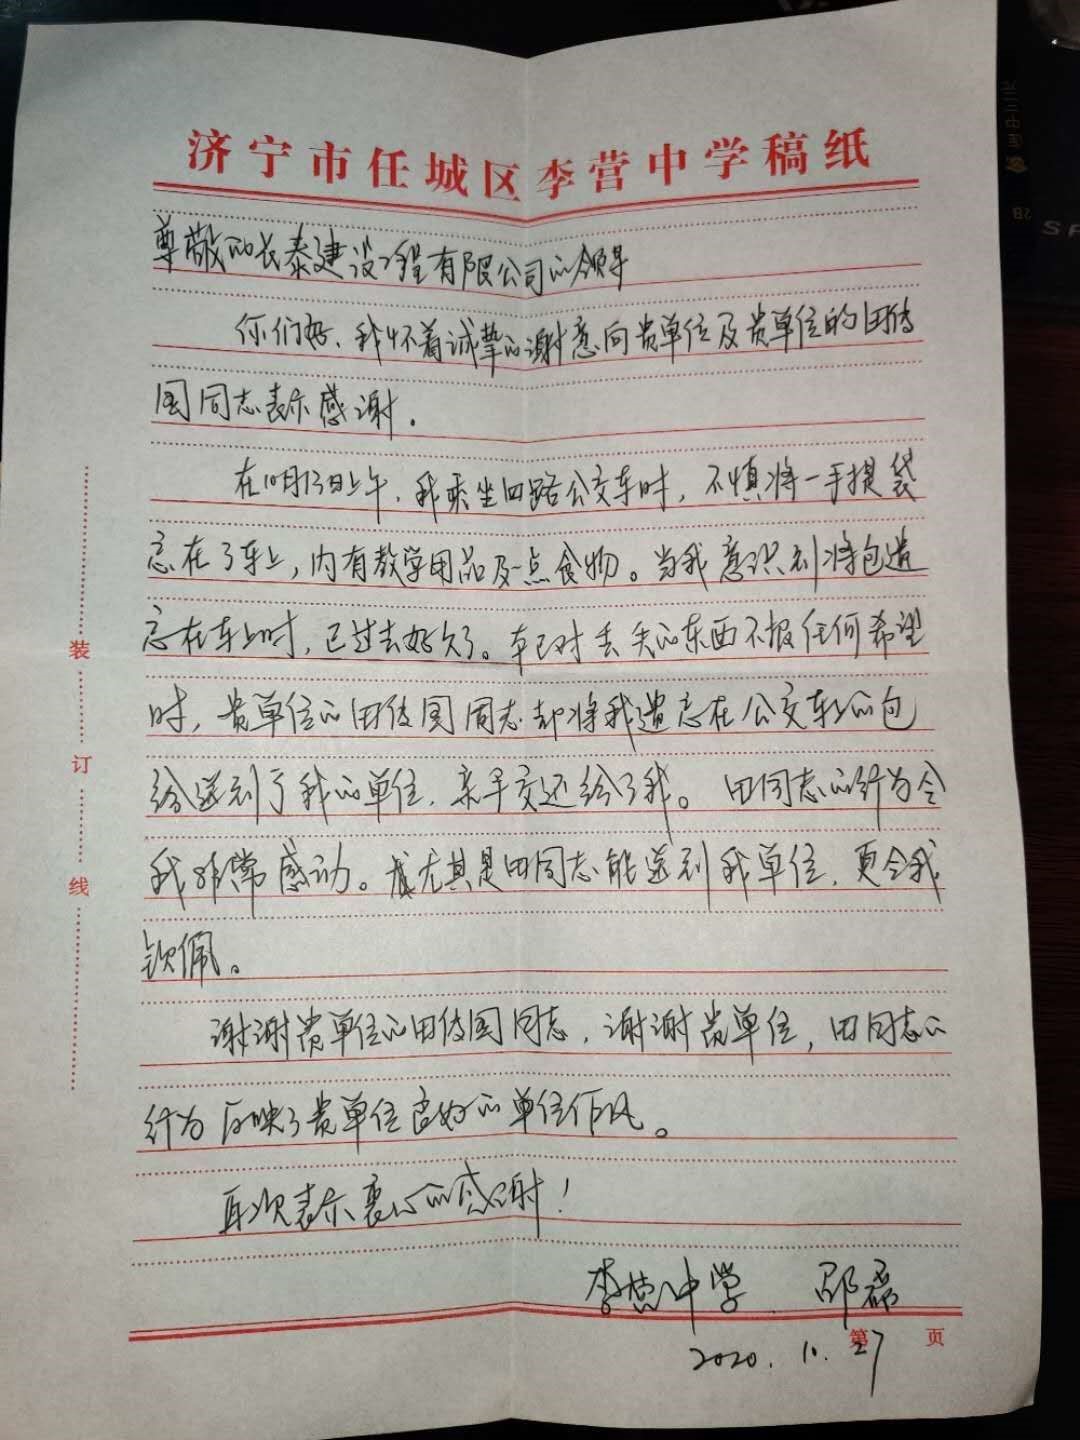 济宁市任城区李营中学稿纸
尊敬的长泰建设工程有限公司的领导
你们好，我怀着诚挚的谢意向贵单位及贵单位的田传
国同志表示感谢。
在10月13日上午，我乘坐四路公交车时，不慎将一手提袋
忘在了车上，内有教学用品及一点食物。当我意识到将包遗
忘在车上时，已过去好久了。车已对丢失的东西不报任何希望
时，贵单位的田传国同志却将我遗忘在公交车上的包
给送到了我的单位，亲手交还给了我。田同志的行为令
我非常感动。尤其是田同志能送到我单位，更令我
钦佩。
谢谢贵单位的田传国同志，谢谢贵单位，田同志的
行为反映了贵单位良好的单位作风。
再次表示衷心的感谢！
李营中学 邵磊
第 页
2020.10.27
装
订
线